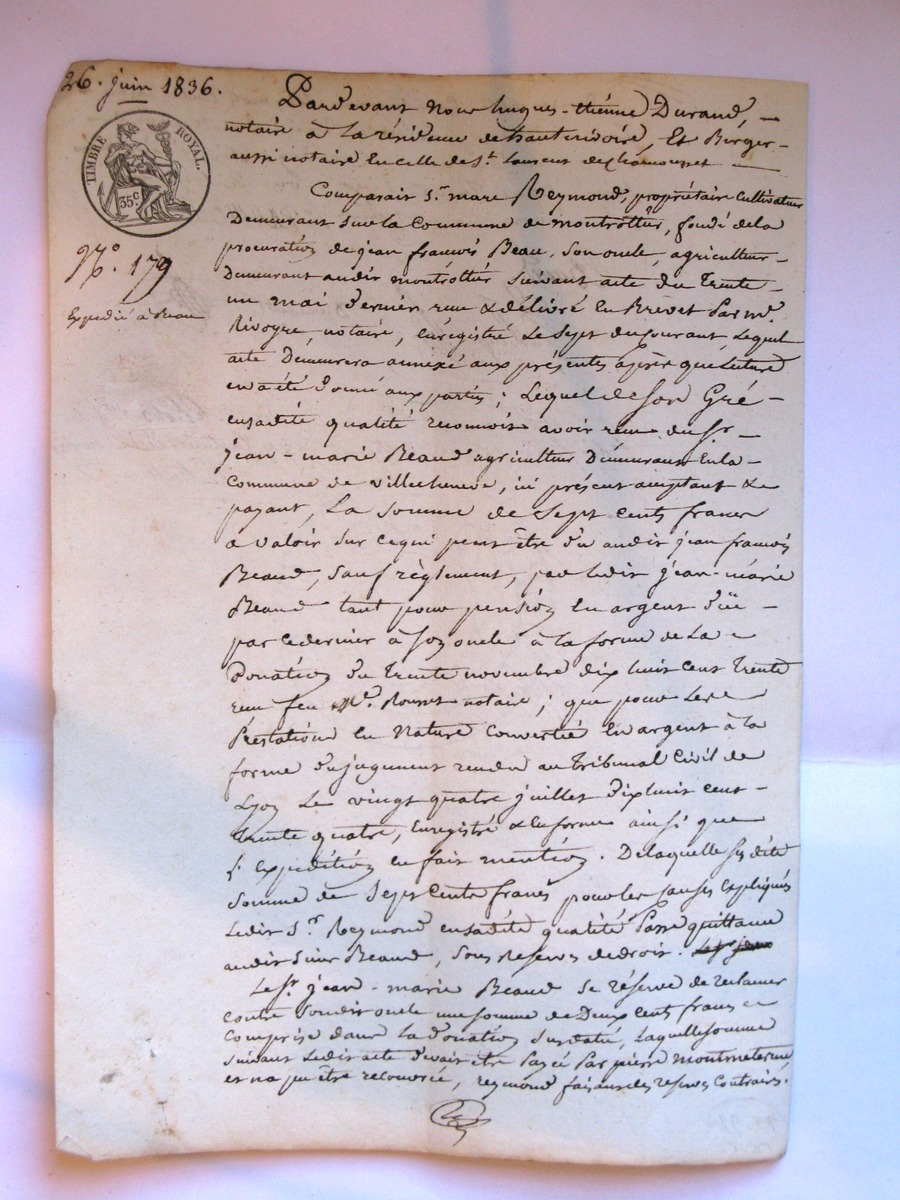 26. juin 1836.
TIMBRE ROYAL.
35 c
N.° 179
Expédié à Beau
Pardevant Nous hugues-thiénne Durand,
notaire à la résidence de hauterivoire, Et Berger
aussi notaire En celle de St. Laurent de chamousset
Comparait Sr. marc Reymond, propriétaire Cultivateur
Demeurant Sur la Commune de montrottier, fondé de la
procuration de jean francois Beau, Son oncle, agriculteur
Demeurant audit montrottier suivant acte du Trente
un mai dernier reçu & délivré En Brevet Par me.
Rivoyre, notaire, Enregistré Le Sept du Courant, Lequel
acte Demeurera annexé aux présentes après que Lecture
en a été donné aux parties ; Lequel de Son Gré
en sadite qualité reconnoit avoir reçu du Sr.
jean-marie Beaud agriculteur Demeurant En la
Commune de villechenève, ici présent acceptant &
payant, La Somme de Sept Cents francs
a valoir Sur ce qui peut être du audit jean francois
Beaud, Sauf règlement, par ledit jean-marie
Beaud tant pour pension En argent düe
par ce dernier à Son oncle à la forme de La
Donation du Trente novembre dix huit cent Trente
reçu feu Me. Rousset notaire ; que pour Les
Prestations En Nature Convertie En argent à la
forme d'un jugement rendu au Tribunal Civil de
Lyon Le vingt quatre juillet dix huit cent
trente quatre, Enregistré & en forme ainsi que
l'Expédition en fait mention. De laquelle susdite
Somme de Sept Cents francs pour les Causes Expliqués
Ledit Sr. Reymond en sadite qualité Passe quittance
audit Sieur Beaud, Sous Reserves de droit.
Le Sr. jean-marie Beaud se réserve de reclamer
contre Sondit oncle une somme de Deux Cents francs
Comprise dans la donation Susdatée, Laquelle somme
suivant Ledit acte devait être Payée Par pierre montmeterme
et n'a pu être recouvrée, reymond faisant des reserves Contraires.